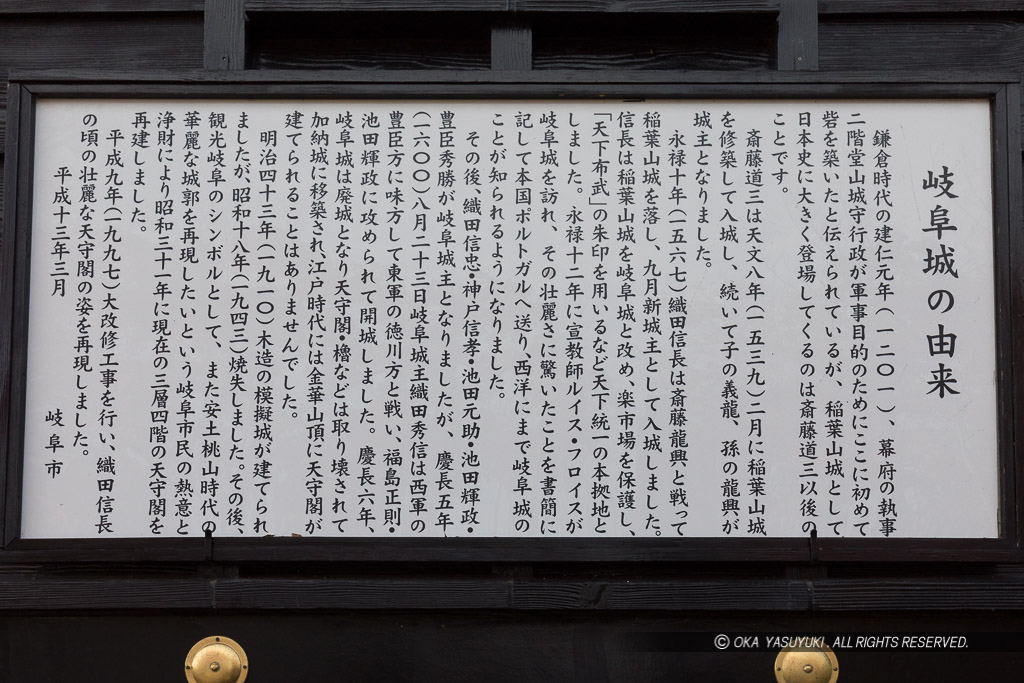 岐阜城の由来
鎌倉時代の建仁元年(一二〇一)、幕府の執事
二階堂山城守行政が軍事目的のためにここに初めて
砦を築いたと伝えられているが、稲葉山城として
日本史に大きく登場してくるのは斎藤道三以後の
ことです。
斎藤道三は天文八年(一五三九)二月に稲葉山城
を修築して入城し、続いて子の義龍、孫の龍興が
城主となりました。
永禄十年(一五六七)織田信長は斎藤龍興と戦って
稲葉山城を落し、九月新城主として入城しました。
信長は稲葉山城を岐阜城と改め、楽市場を保護し、
「天下布武」の朱印を用いるなど天下統一の本拠地と
しました。永禄十二年に宣教師ルイス・フロイスが
岐阜城を訪れ、その壮麗さに驚いたことを書簡に
記して本国ポルトガルへ送り、西洋にまで岐阜城の
ことが知られるようになりました。
その後、織田信忠・神戸信孝・池田元助・池田輝政・
豊臣秀勝が岐阜城主となりましたが、慶長五年
(一六〇〇)八月二十三日岐阜城主織田秀信は西軍の
豊臣方に味方して東軍の徳川方と戦い、福島正則・
池田輝政に攻められて開城しました。慶長六年、
岐阜城は廃城となり天守閣・櫓などは取り壊されて
加納城に移築され、江戸時代には金華山頂に天守閣が
建てられることはありませんでした。
明治四十三年(一九一〇)木造の模擬城が建てられ
ましたが、昭和十八年(一九四三)焼失しました。その後、
観光岐阜のシンボルとして、また安土桃山時代の
華麗な城郭を再現したいという岐阜市民の熱意と
浄財により昭和三十一年に現在の三層四階の天守閣を
再建しました。
平成九年(一九九七)大改修工事を行い、織田信長
の頃の壮麗な天守閣の姿を再現しました。
平成十三年三月
岐阜市
© OKA YASUYUKI. ALL RIGHTS RESERVED.